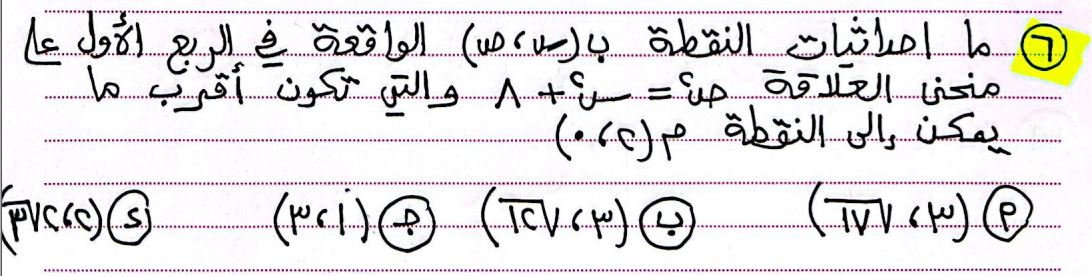 ٦ ما احداثيات النقطة ب(س، ص) الواقعة في الربع الأول على
منحنى العلاقة ص² = س² + ٨ والتي تكون أقرب ما
يمكن إلى النقطة م(٢، ٠)
أ (٣، √١٧) ب (٣، √١٢) ج (١، ٣) د (٢، ٢√٣)